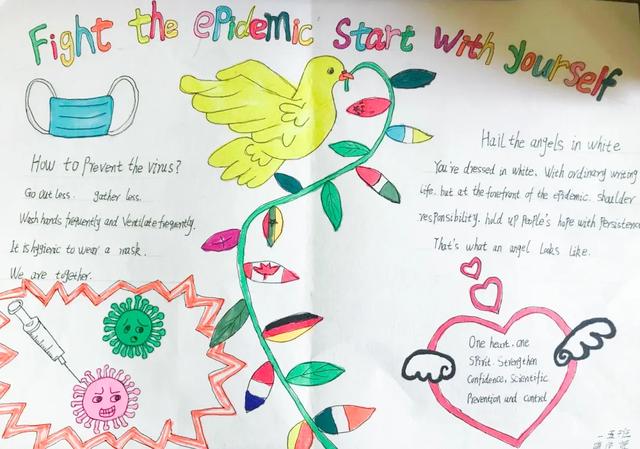 Fight the epidemic Start With yourself
How to Prevent the virus?
Go out less. gather less.
Wash hands frequently and Ventilate frequently.
It is hygienic to wear a mask.
We are together.
Hail the angels in white
You're dressed in white. With ordinary writing
life. but at the forefront of the epidemic. shoulder
responsibility. hold up People's hope with Persistence
That's what an angel Looks Like.
One heart. one
Spirit. Strengthen
Confidence. Scientific
Prevention and control
一五班